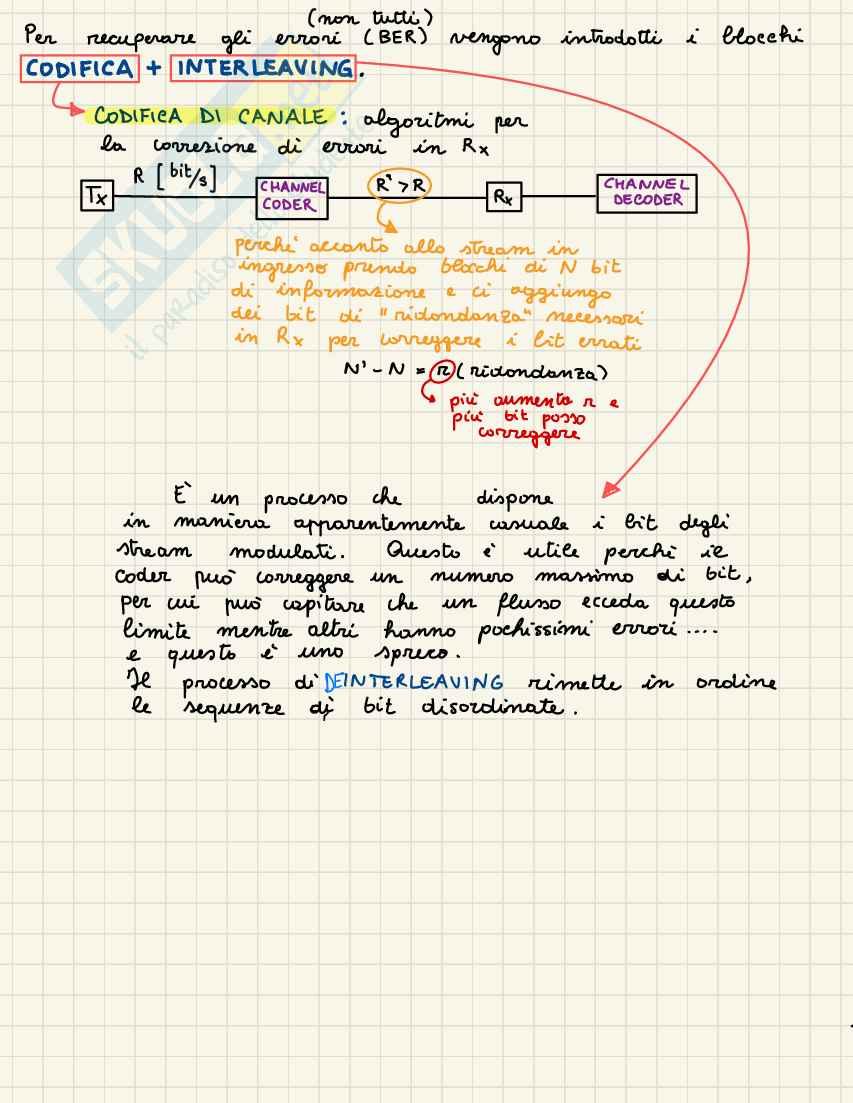 (non tutti)
Per recuperare gli errori (BER) vengono introdotti i blocchi
CODIFICA + INTERLEAVING.
CODIFICA DI CANALE : algoritmi per
la correzione di errori in Rx
R [bit/s]
Tx
CHANNEL
CODER
R' > R
Rx
CHANNEL
DECODER
perché accanto allo stream in
ingresso prendo blocchi di N bit
di informazione e ci aggiungo
dei bit di "ridondanza" necessari
in Rx per correggere i bit errati
N' - N = r (ridondanza)
più aumento r e
più bit posso
correggere
È un processo che dispone
in maniera apparentemente casuale i bit degli
stream modulati. Questo è utile perché il
coder può correggere un numero massimo di bit,
per cui può capitare che un flusso ecceda questo
limite mentre altri hanno pochissimi errori....
e questo è uno spreco.
Il processo di DEINTERLEAVING rimette in ordine
le sequenze di bit disordinate.
SKUOLA.net
il paradiso dello studente